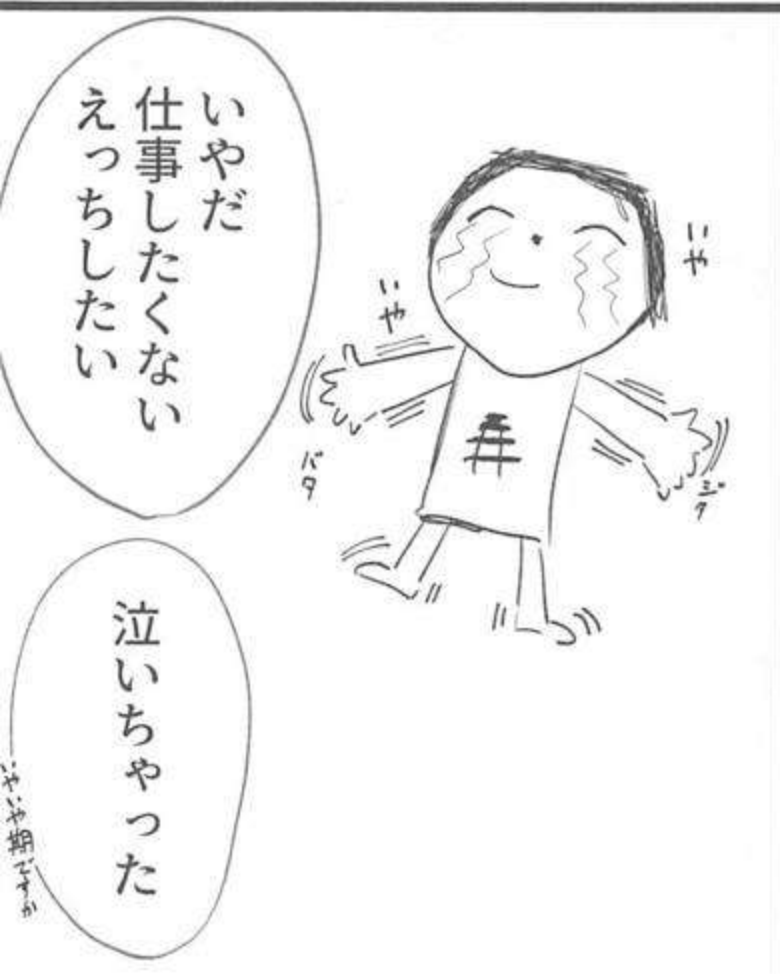 いやだ
仕事したくない
えっちしたい
いや
いや
バタ
泣いちゃった
いやいや期ですか